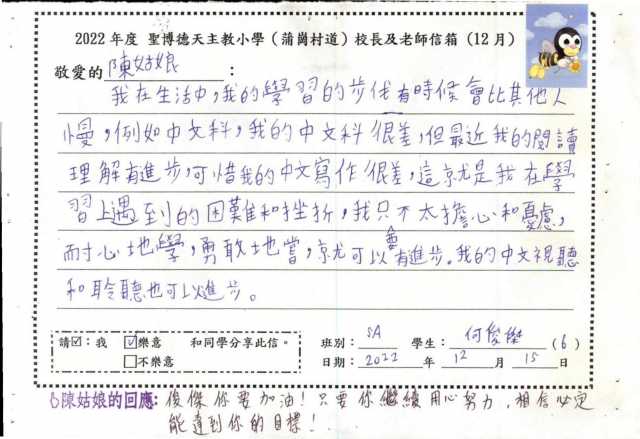 2022 年度 聖博德天主教小學（蒲崗村道）校長及老師信箱（12 月）
敬愛的 陳姑娘 ：
我在生活中，我的學習的步伐有時候會比其他人
慢，例如中文科，我的中文科很差，但最近我的閱讀
理解有進步，可惜我的中文寫作很差，這就是我在學
習上遇到的困難和挫折，我只不太擔心和憂慮，
耐心地學，勇敢地嘗，就可以會有進步。我的中文視聽
和聆聽也可以進步。
請☑：我 ☑樂意 和同學分享此信。
□不樂意
班別： 5A 學生： 何俊傑 (6)
日期： 2022 年 12 月 15 日
陳姑娘的回應: 俊傑你要加油！只要你繼續用心努力，相信必定
能達到你的目標！